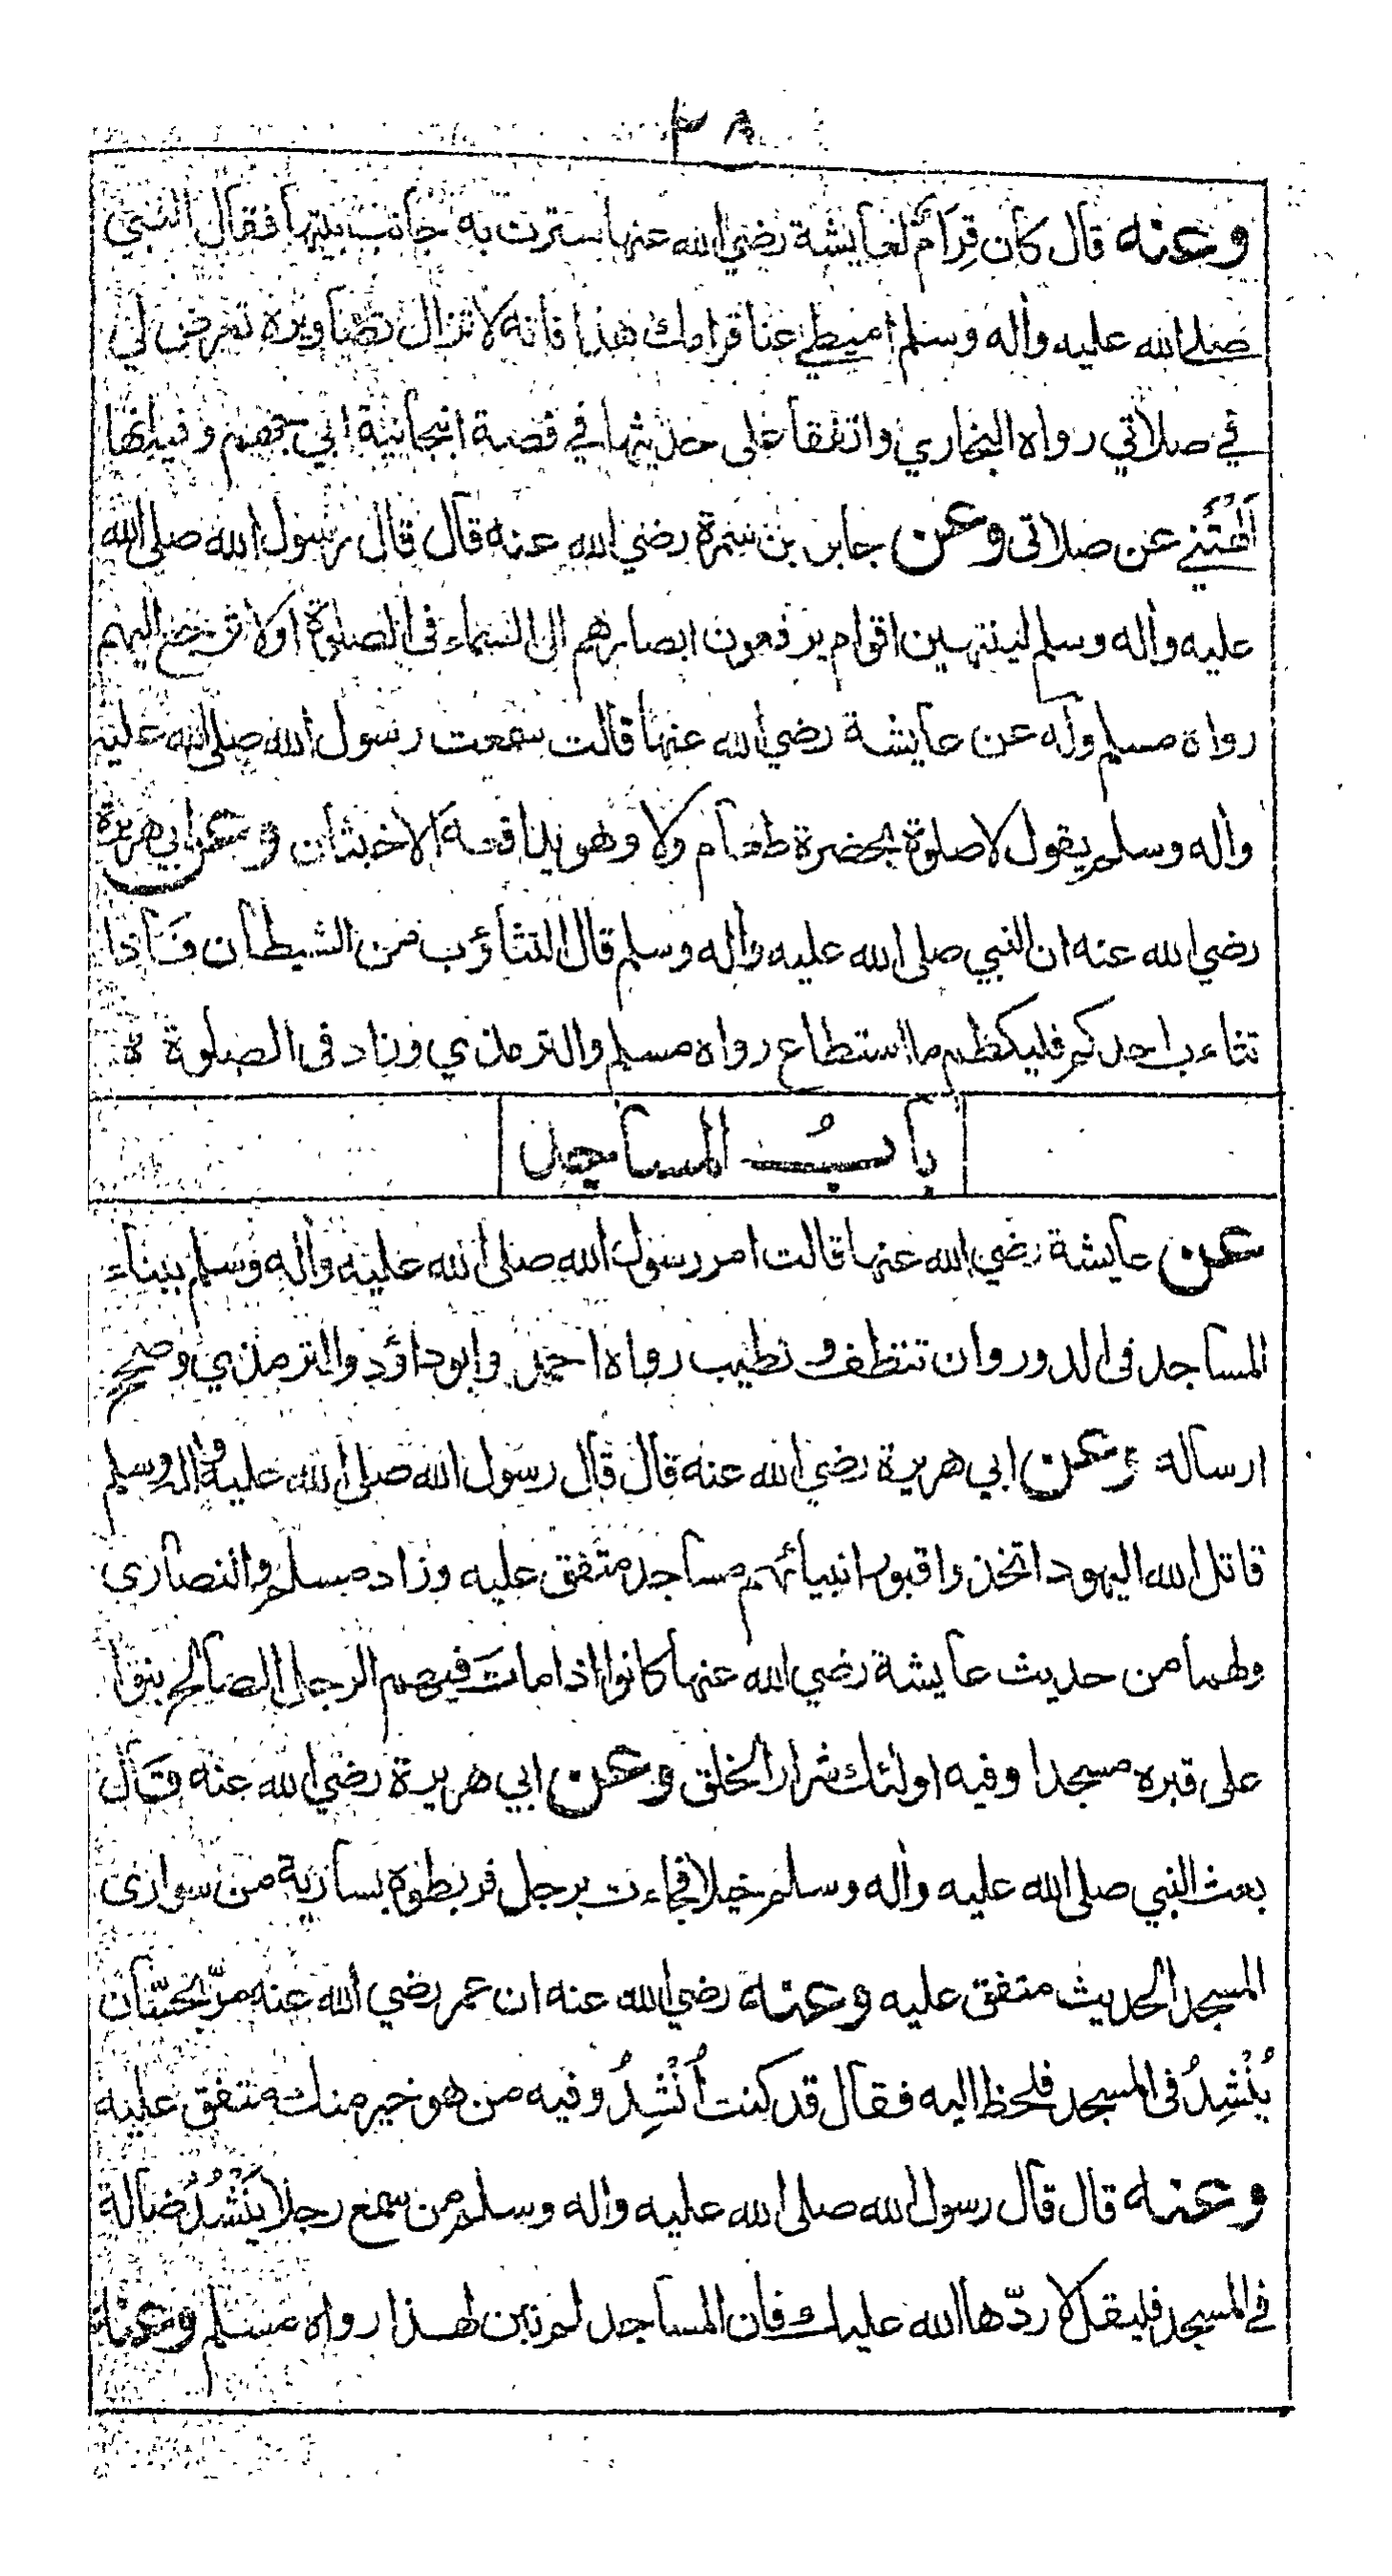 ٢٨
وعنه قال كان قِرَامٌ لعايشة رضي الله عنها سترت به جانب بيتها فقال النبي
صلى الله عليه وآله وسلم اميطي عنا قرامك هذا فانه لا تزال تصاويره تعرض لي
في صلاتي رواه البخاري واتفقا على حديثها في قصة انبجانية ابي جهيم وفيه انها
اَلْهَتْني عن صلاتي وعن جابر بن سمرة رضي الله عنه قال قال رسول الله صلى الله
عليه وآله وسلم لينتهين اقوام يرفعون ابصارهم الى السماء في الصلوة اولا ترجع اليهم
رواه مسلم وله عن عايشة رضي الله عنها قالت سمعت رسول الله صلى الله عليه
وآله وسلم يقول لا صلوة بحضرة طعام ولا وهو يدافعه الاخبثان وعن ابي هريرة
رضي الله عنه ان النبي صلى الله عليه وآله وسلم قال التثاؤب من الشيطان فاذا
تثاءب احدكم فليكظم ما استطاع رواه مسلم والترمذي وزاد في الصلوة
بابُ المساجد
عن عايشة رضي الله عنها قالت امر رسول الله صلى الله عليه وآله وسلم ببناء
المساجد في الدور وان تنظف وتطيب رواه احمد وابو داؤد والترمذي وصحح
ارساله وعن ابي هريرة رضي الله عنه قال قال رسول الله صلى الله عليه وآله وسلم
قاتل الله اليهود اتخذوا قبور انبيائهم مساجد متفق عليه وزاد مسلم والنصارى
ولهما من حديث عايشة رضي الله عنها كانوا اذا ماتَ فيهم الرجل الصالح بنوا
على قبره مسجدا وفيه اولئك شرار الخلق وعن ابي هريرة رضي الله عنه قال
بعث النبي صلى الله عليه وآله وسلم خيلا فجاءت برجل فربطوه بسارية من سوارى
المسجد الحديث متفق عليه وعنه رضي الله عنه ان عمر رضي الله عنه مرّ بحسّان
يُنْشِدُ في المسجد فلحظ اليه فقال قد كنت اُنْشِدُ وفيه من هو خير منك متفق عليه
وعنه قال قال رسول الله صلى الله عليه وآله وسلم من سمع رجلا يَنْشُدُ ضالة
في المسجد فليقل لا ردّها الله عليك فان المساجد لم تبن لهذا رواه مسلم وعنه